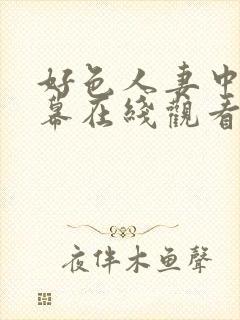 好色人妻中
幕在綫觀看
夜伴木鱼聲